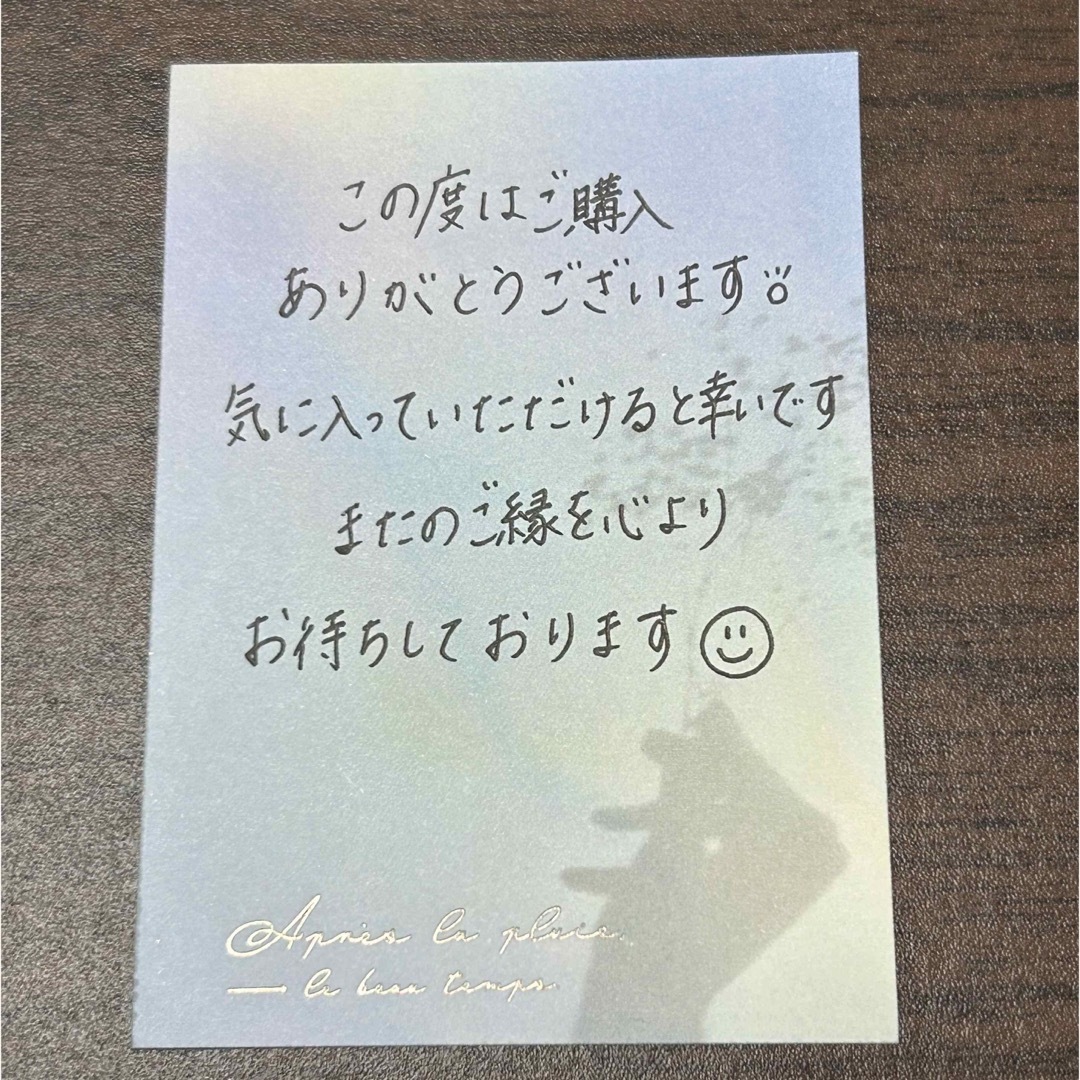 この度はご購入
ありがとうございます
気に入っていただけると幸いです
またのご縁を心より
お待ちしております
Après la pluie
le beau temps.